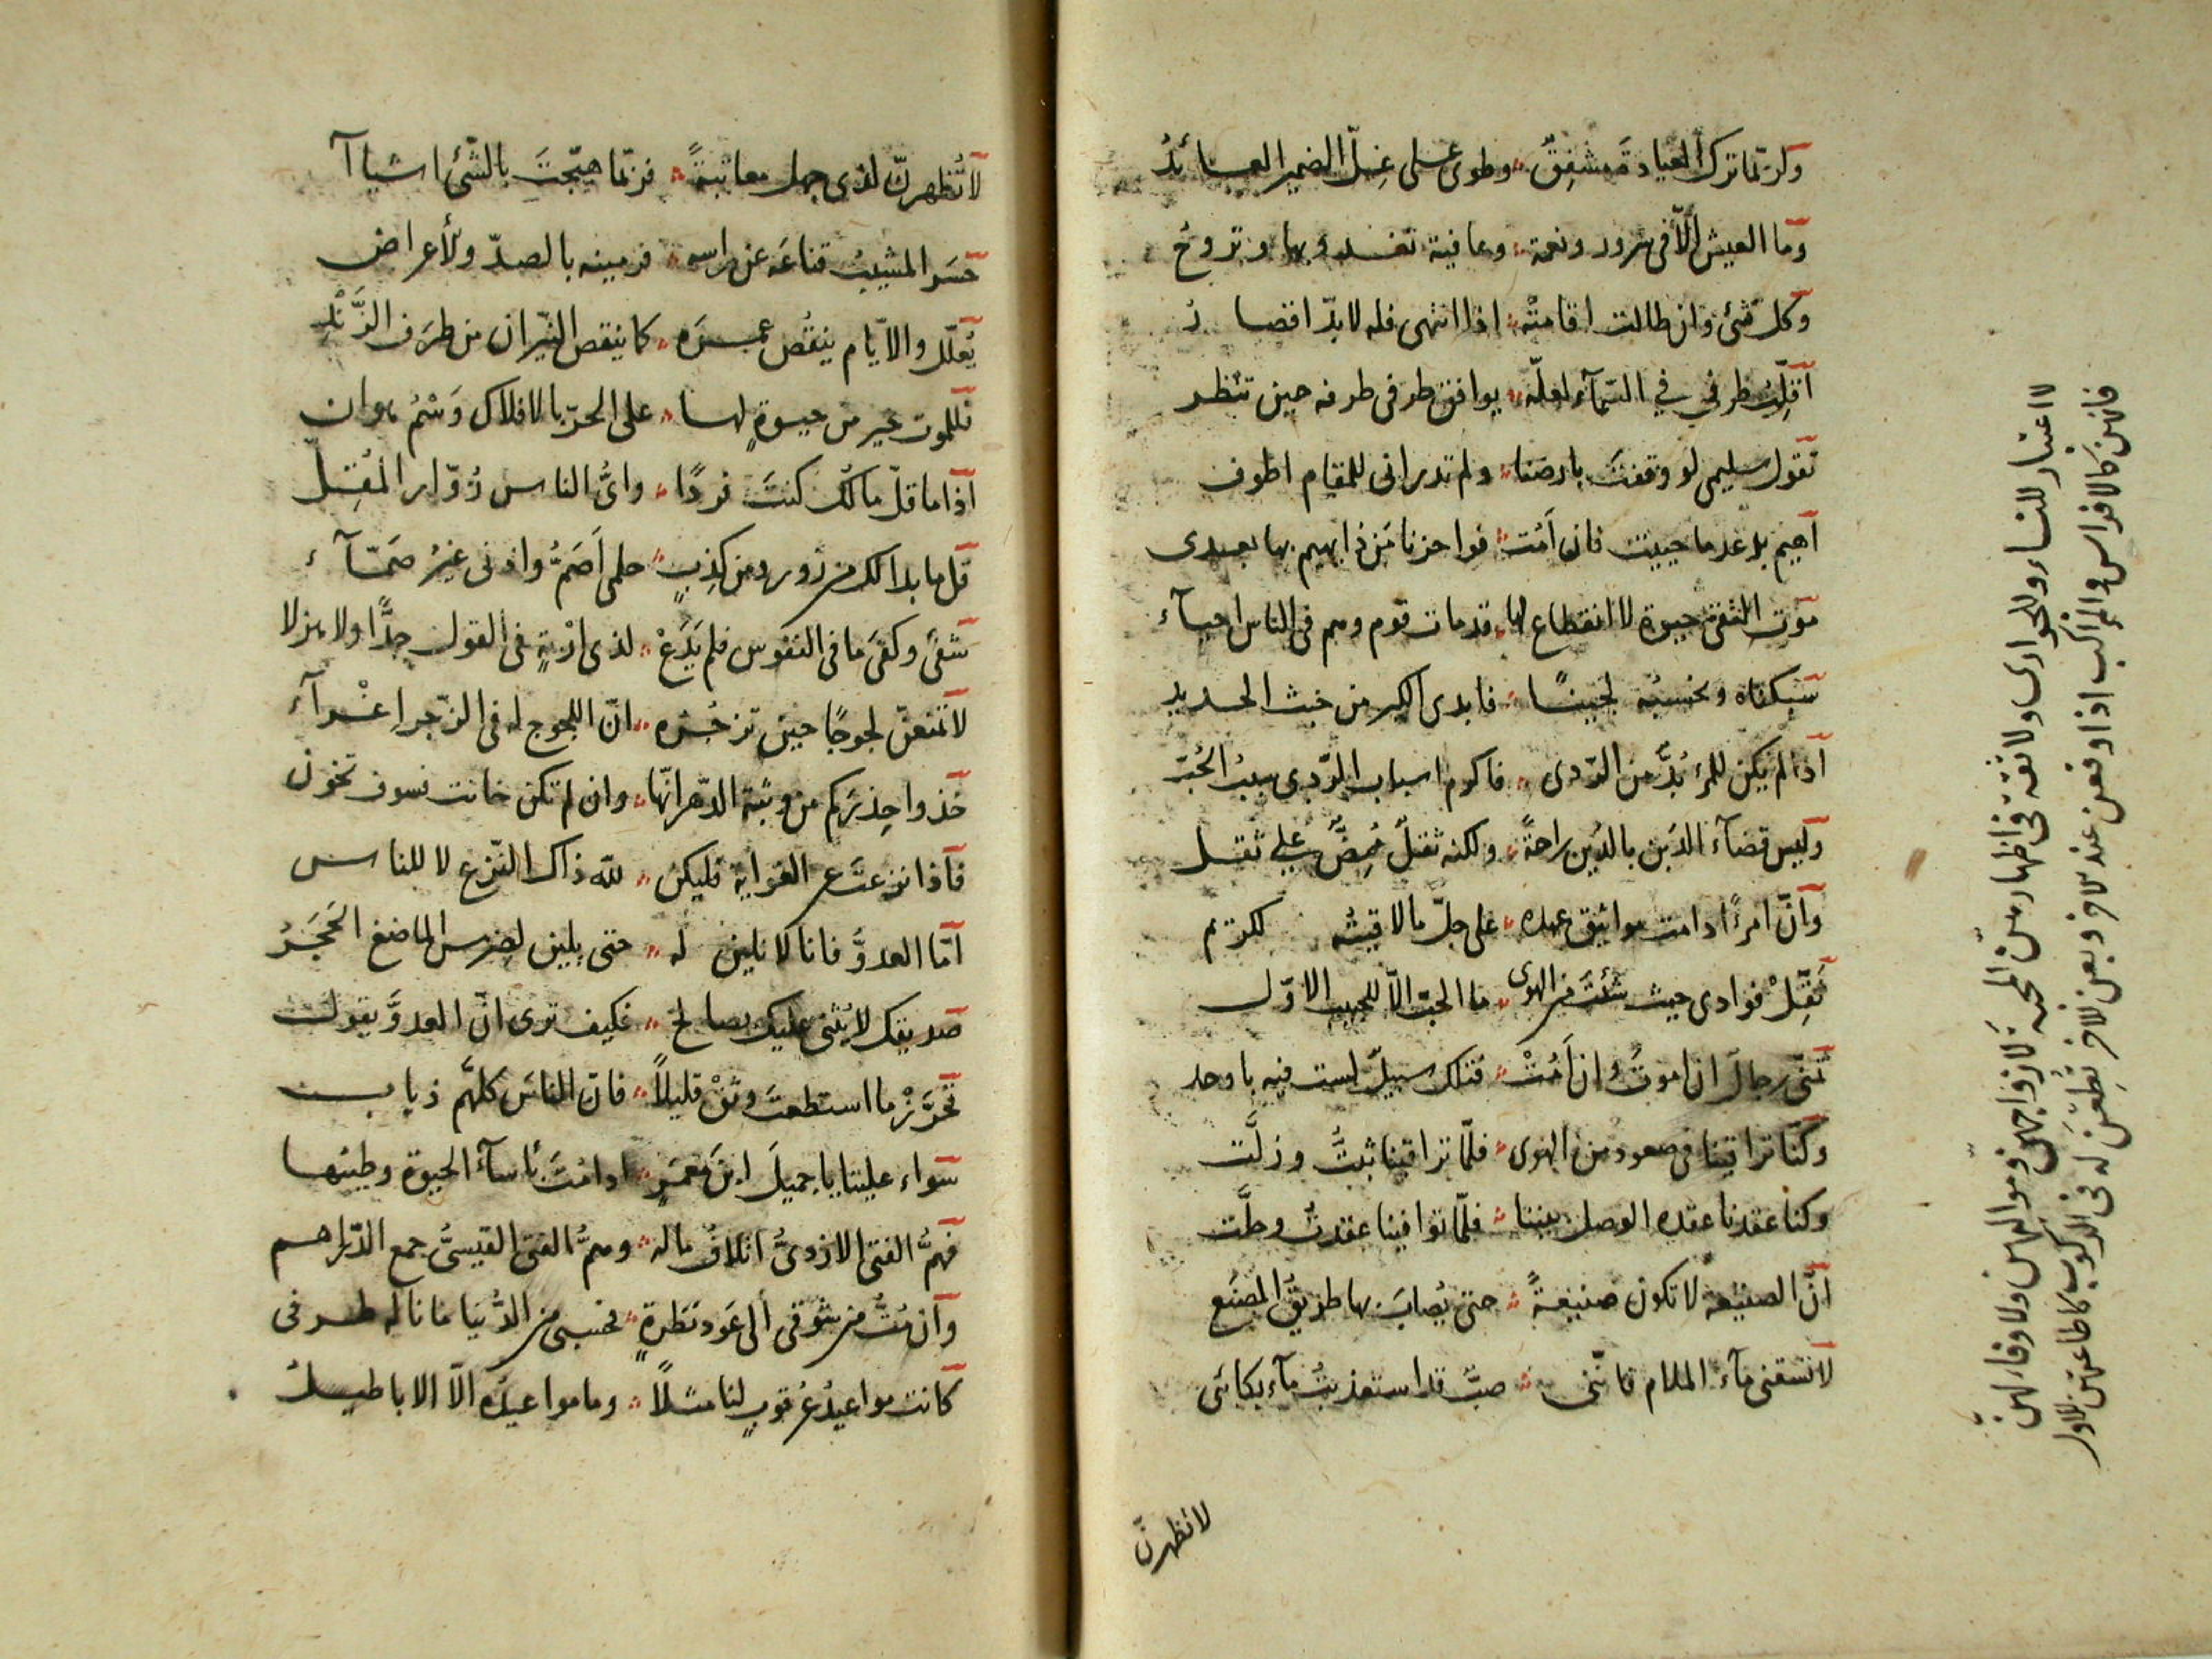 ولربّما ترك العيادةَ مشفقٌ وطوى على غلّ الضمير العائدُ
وما العيش الّا فى سرور ونعمة وعافية تغدو بها وتروحُ
وكل شئ وان طالت اقامته اذا انتهى فله لا بدّ اقصارُ
اقلّب طرفي في السّمآء لعلّه يوافق طرفى طرفه حين تنظر
تقول سليمى لو وقفتَ بارضنا ولم تدر انى للمقام اطوف
اهيم بدعد ما حييت فان اَمُت فوا حزنا مَن ذا يهيم بها بعدى
موت التقىّ حيوة لا انقطاع لها قد مات قوم وهم فى الناس احيآء
سبكناه ونحسبُه لجينًا فابدى الكير من خبث الحديد
اذا لم يكن للمرء بُدٌّ من الرّدى فاكرم اسباب الرّدى سببُ الحُبّ
وليس قضآء الدَين بالدَين راحةً ولكنه ثقلٌ مُمِضٌّ على ثقل
وانّ امرءًا دامت مواثيق عهده على جلّ ما لاقيتُه لكريم
نَقِّلْ فوادى حيث شئتَ من الهوى ما الحبّ الّا للحبيب الاوّل
تمنّى رجالٌ ان اموتَ وان اَمُتْ فتلك سبيلٌ لست فيه باوحد
وكنّا تراقينا فى صعود من الهوى فلمّا تراقينا ثبتُّ وزلَّت
وكنا عقدنا عقدة الوصل بيننا فلمّا توافينا عقدتُ وحلَّت
انّ الصنيعة لا تكون صنيعةً حتى يُصابَ بها طريقُ المصنَع
لا تسقنى مآء الملام فانّنى صبٌّ قد استعذبتُ مآء بكائى
لا تظهرنّ
لا اعتبار للنساء وللجوارى ولا ثقة فى اظهارهنّ المحبّة لازواجهنّ وموالهنّ ولا وفاء لهنّ
فانهنّ كالافراس والمراكب اذا وقعن عند الاخر وبعن للاخر تُطِعَن له فى الركوب كاطاعتهنّ للاول
لا تُظهرنّ لذى جهل معاتبةً فربّما هيّجتَ بالشّئ اشياآ
حسَر المشيبُ قناعَه عن راسه فرمينه بالصدّ والأعراض
يُعلّل والايّام ينقُص عمرَه كما ينقص النيّران من طرَف الزَّنْدِ
فللموت خير من حيوةٍ لها على الحرّ بالاقلاك وَسْمُ هوان
اذا ما قلّ مالُك كنتَ فردًا واىُّ الناس زُوّار المُقِلّ
قل ما بدا لك من زور ومن كذِبٍ حلمى اَصَمُّ واذنى غيرُ صَمّآء
شفى وكفَى ما فى النفوس فلم يَدَعْ لذى اربةٍ فى القول جِدًّا ولا هزلا
لا تمنعنّ لجوجًا حين تزجُره انّ اللجوج له فى الزّجر اِغْرآء
خذوا حِذرَكم من وثبة الدّهر انّها وان لم تكن خانت فسوف تخون
فاذا نزعتَ عن الغواية فليكن لله ذاك النّزع لا للناس
امّا العدوُّ فانا لا نلين له حتى يلين لضرس الماضغ الحَجَرُ
صديقك لا يُثنى عليك بصالح فكيف ترى انّ العدوَّ يقول
تحرَّزْ ما استطعتَ وثقْ قليلاً فانّ الناسَ كلَّهم ذياب
سواء علينا يا جميلَ ابنَ معمَرٍ اذا مُتَّ بأسآء الحيوة وطيبُها
فهَمُّ الفتى الازدىّ اتلافُ ماله وهمُّ الفتى القيسىّ جمع الدّراهم
وان مُتُّ من شوقى الى عَود نظرةٍ فحسبى من الدُّنيا ما ناله طرفى
كانت مواعيدُ عُرقوبٍ لنا مثلاً وما مواعيدُه الّا الاباطيلُ